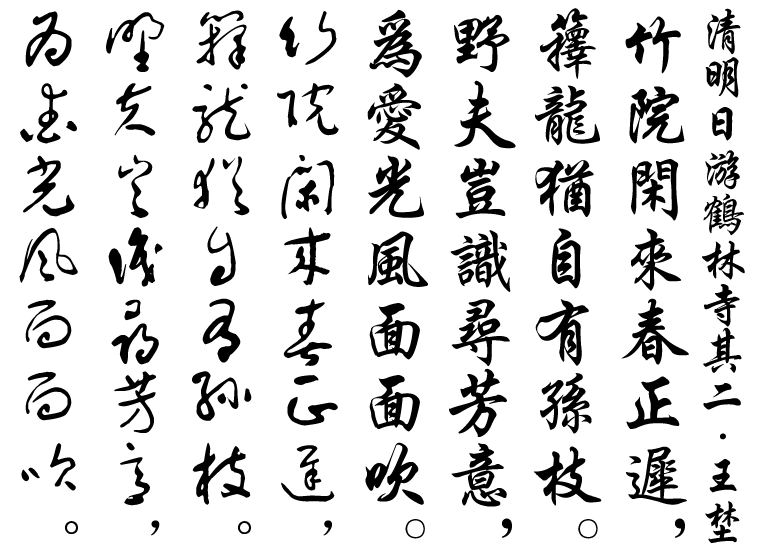 清明日游鶴林寺其二·王埜
竹院閑來春正遲,
籜龍猶自有孫枝。
野夫豈識尋芳意,
為愛光風面面吹。
竹院閑來春正遲,
籜龍猶自有孫枝。
野夫豈識尋芳意,
為愛光風面面吹。